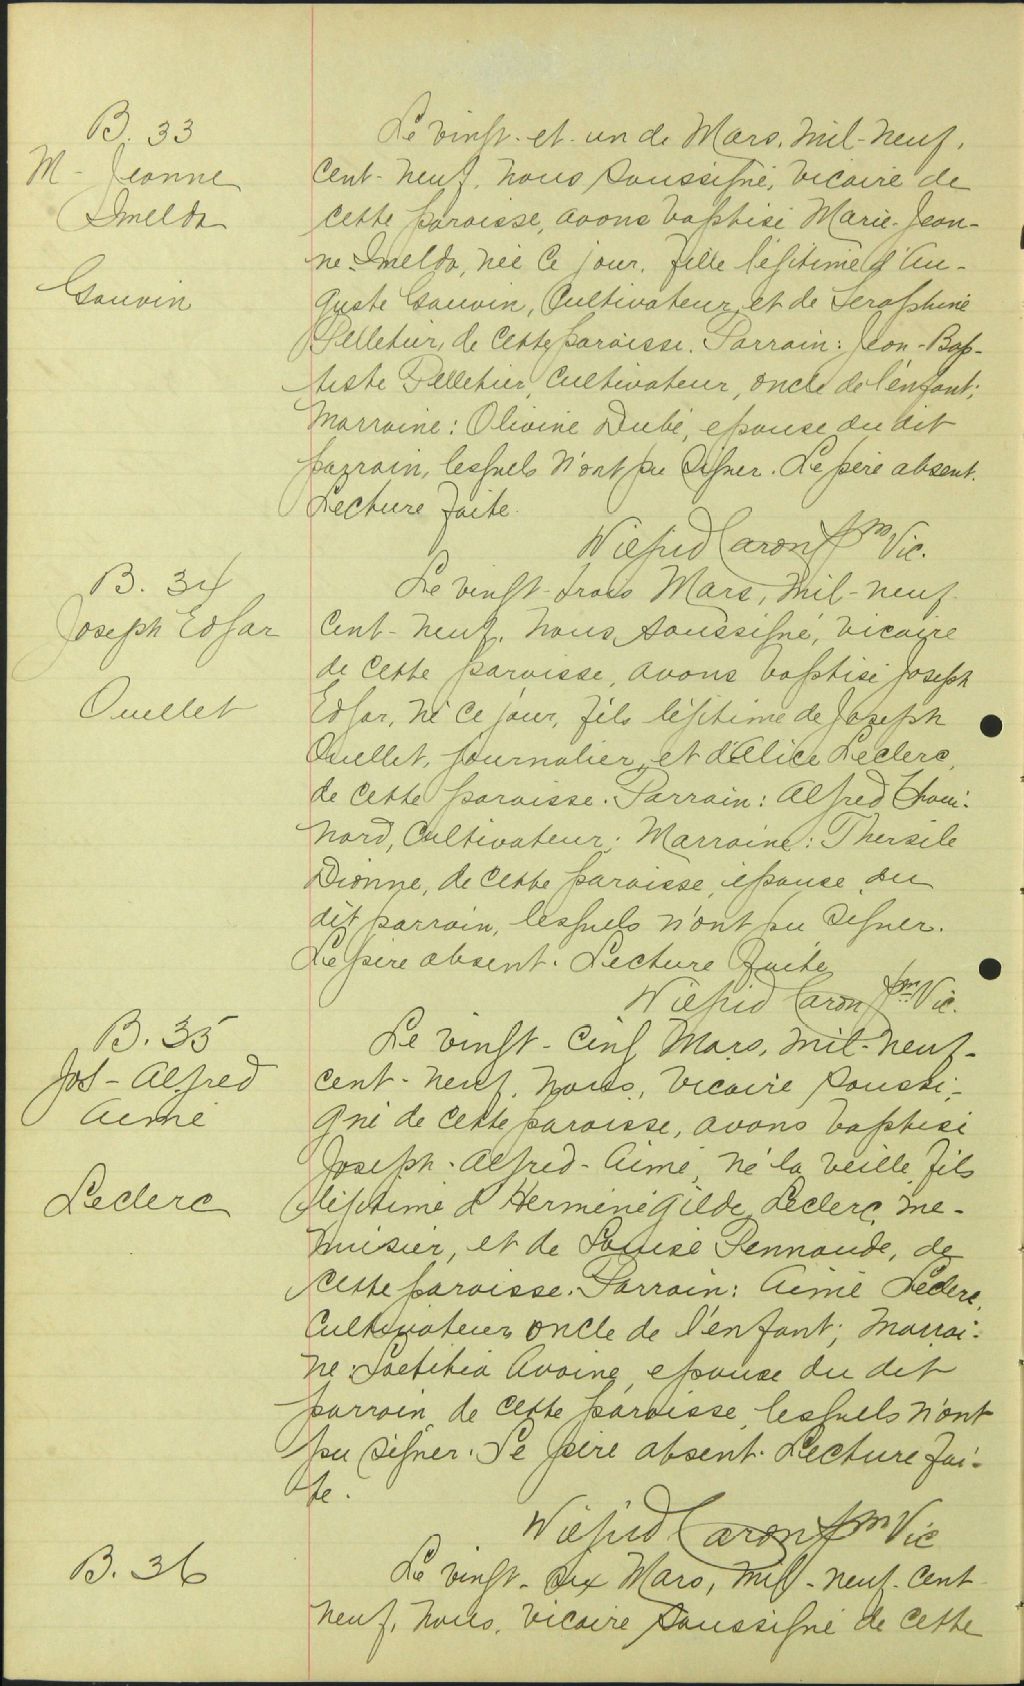 B. 33
M - Jeanne
Imelda
Gauvin
Le vingt-et-un de Mars, mil-neuf-
cent-neuf, nous soussigné, vicaire de
cette paroisse, avons baptisé Marie-Jean-
ne-Imelda, née ce jour, fille légitime d'Au-
guste Gauvin, Cultivateur, et de Seraphine
Pelletier, de cette paroisse. Parrain: Jean-Bap-
tiste Pelletier, cultivateur, oncle de l'enfant;
Marraine: Olivine Dubé, epouse du dit
parrain, lesquels n'ont pu signer. Le père absent.
Lecture faite.
Wilfrid Caron Ptre Vic.
B. 34
Joseph Edgar
Ouellet
Le vingt-trois Mars, mil-neuf-
cent-neuf, nous, soussigné, vicaire
de cette paroisse, avons baptisé Joseph
Edgar, né ce jour, fils légitime de Joseph
Ouellet, journalier, et d'Alice Leclerc,
de cette paroisse. Parrain: Alfred Choui-
nard, Cultivateur; Marraine: Thersile
Dionne, de cette paroisse, épouse du
dit parrain, lesquels n'ont pu signer.
Le père absent. Lecture faite
Wilfrid Caron Ptre Vic.
B. 35
Jos - Alfred
Aimé
Leclerc
Le vingt-cinq Mars, mil-neuf-
cent-neuf, nous, vicaire soussi-
gné de cette paroisse, avons baptisé
Joseph-Alfred-Aimé, né la veille, fils
légitime d'Herménégilde Leclerc, me-
nuisier, et de Louise Pennaude, de
cette paroisse. Parrain: Aimé Leclerc,
Cultivateur, oncle de l'enfant; Marrai-
ne: Laetitia Avoine, epouse du dit
parrain, de cette paroisse, lesquels n'ont
pu signer. Le père absent. Lecture fai-
te.
Wilfrid Caron Ptre Vic
B. 36
Le vingt-six Mars, mil-neuf-cent-
neuf, nous, vicaire soussigné de cette